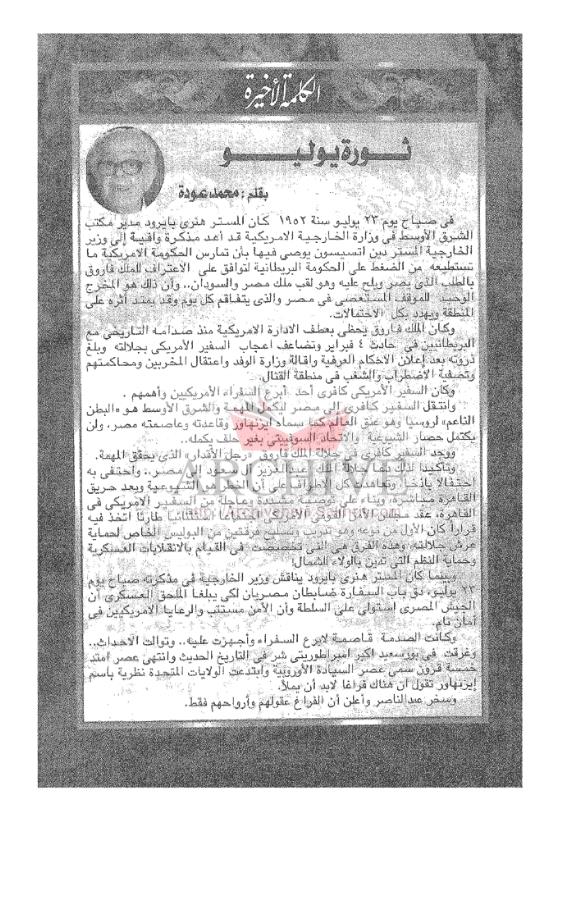 الكلمة الأخيرة
ثورة يوليو
بقلم : محمد عودة
فى صباح يوم ٢٣ يوليو سنة ١٩٥٢ كان المستر هنرى بايرود مدير مكتب
الشرق الأوسط فى وزارة الخارجية الامريكية قد أعد مذكرة وافية إلى وزير
الخارجية المستر دين اتسيسون يوصى فيها بأن تمارس الحكومة الامريكية ما
تستطيعه من الضغط على الحكومة البريطانية لتوافق على الاعتراف للملك فاروق
بالطلب الذى يصر ويلح عليه وهو لقب ملك مصر والسودان.. وأن ذلك هو المخرج
الوحيد للموقف المستعصى فى مصر والذى يتفاقم كل يوم وقد يمتد أثره على
المنطقة ويهدد بكل الاحتمالات.
وكان الملك فاروق يحظى بعطف الادارة الامريكية منذ صدامه التاريخى مع
البريطانيين فى حادث ٤ فبراير وتضاعف اعجاب السفير الأمريكى بجلالته وبلغ
ذروته بعد إعلان الاحكام العرفية واقالة وزارة الوفد واعتقال المخربين ومحاكمتهم
وتصفية الاضطراب والشغب فى منطقة القنال.
وكان السفير الأمريكى كافرى أحد أبرع السفراء الأمريكيين وأهمهم .
وانتقل السفير كافرى إلى مصر ليكمل المهمة والشرق الأوسط هو «البطن
الناعم» لروسيا وهو عنق العالم كما سماه ايزنهاور وقاعدته وعاصمته مصر، ولن
يكتمل حصار الشيوعية والاتحاد السوفييتى بغير حلف يكمله..
ووجد السفير كافرى فى جلالة الملك فاروق «رجل الأقدار» الذى يحقق المهمة.
وتأكيدا لذلك دعا جلالة الملك عبد العزيز آل سعود إلى مصر.. واحتفى به
احتفالا باذخا وتعاهدت كل الأطراف على أن الخطر هو الشيوعية وبعد حريق
القاهرة مباشرة، وبناء على توصية مشددة وعاجلة من السفير الامريكى فى
القاهرة، عقد مجلس الأمن القومى الأمريكى اجتماعا استثنائيا طارئا اتخذ فيه
قرارا كان الأول من نوعه وهو تدريب وتسليح فرقتين من البوليس الخاص لحماية
عرش جلالته، وهذه الفرق هى التى تخصصت فى القيام بالانقلابات العسكرية
وحماية النظم التى تدين بالولاء للشمال!
وبينما كان المستر هنرى بايرود يناقش وزير الخارجية فى مذكرته صباح يوم
٢٣ يوليو، دق باب السفارة ضابطان مصريان لكى يبلغا الملحق العسكرى أن
الجيش المصرى استولى على السلطة وأن الأمن مستتب والرعايا الامريكيين فى
أمان تام.
وكانت الصدمة قاصمة لابرع السفراء وأجهزت عليه.. وتوالت الاحداث..
وغرقت فى بورسعيد اكبر امبراطوريتى شر فى التاريخ الحديث وانتهى عصر امتد
خمسة قرون سمى عصر السيادة الأوروبية وابتدعت الولايات المتحدة نظرية باسم
إيزنهاور تقول ان هناك فراغا لابد أن يملأ.
وسخر عبد الناصر وأعلن أن الفراغ عقولهم وأرواحهم فقط.
ARCHIVE